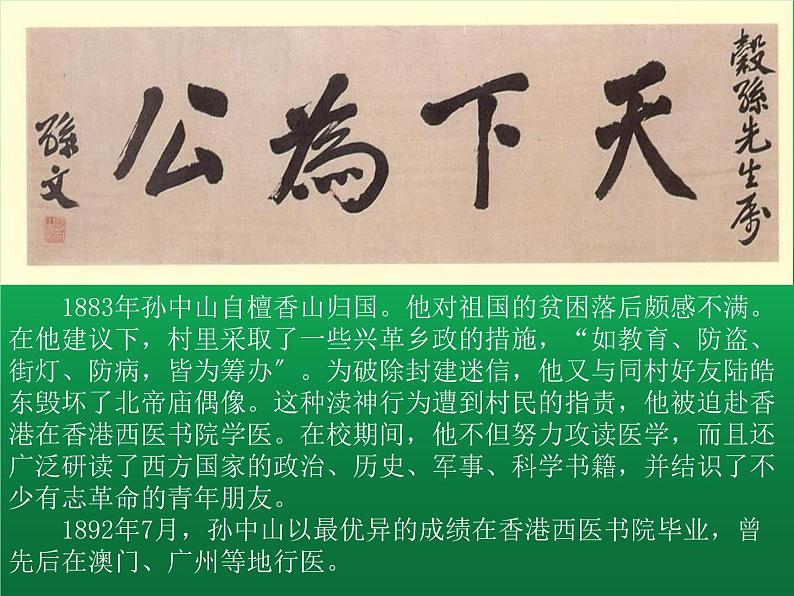 榖孫先生属
天下為公
孫文
1883年孙中山自檀香山归国。他对祖国的贫困落后颇感不满。
在他建议下，村里采取了一些兴革乡政的措施，“如教育、防盗、
街灯、防病，皆为筹办〞。为破除封建迷信，他又与同村好友陆皓
东毁坏了北帝庙偶像。这种渎神行为遭到村民的指责，他被迫赴香
港在香港西医书院学医。在校期间，他不但努力攻读医学，而且还
广泛研读了西方国家的政治、历史、军事、科学书籍，并结识了不
少有志革命的青年朋友。
1892年7月，孙中山以最优异的成绩在香港西医书院毕业，曾
先后在澳门、广州等地行医。